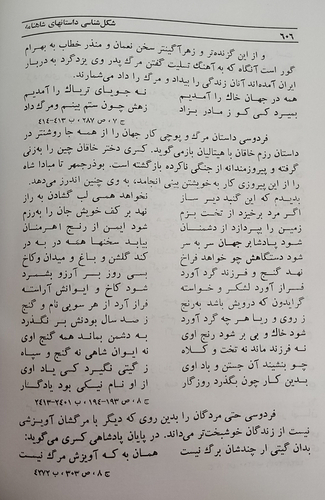 ۶۰۶
شکل‌شناسی داستانهای شاهنامه
و از این گزنده‌تر و زهرآگینتر سخن نعمان و منذر خطاب به بهرام
گور است آنگاه که به آهنگ تسلیت گفتن مرگ پدر وی یزدگرد به دربار
ایران آمده‌اند آنان زندگی را بیداد و مرگ را داد می‌شمارند.
همه در جهان خاک را آمدیم نه جویای تریاک را آمدیم
بمیرد کی کو ز مادر بزاد زهش چون ستم بینم ومرگ داد
ج ۷ ، ص ۲۸۷ ، ب ۴۱۳-۴۱۴
فردوسی داستان مرگ و پوچی کار جهان را از همه جا روشنتر در
داستان رزم خاقان با هیتالیان بازمی‌گوید. کسری دختر خاقان چین را به‌زنی
گرفته و پیروزمندانه از جنگی ناکرده بازگشته است. بوذرجمهر تا مبادا شاه
را از این پیروزی کار به خویشتن بینی انجامد، به وی چنین اندرز می‌دهد.
بدیدم که این گنبد دیر ساز نخواهد همی لب گشادن به راز
اگر مرد برخیزد از تخت بزم نهد بر کف خویش جان را به‌رزم
زمین را بپردازد از دشمنان شود ایمن از رنج اهرمنان
شود پادشا بر جهان سر به سر بیابد سخنها همه در به در
شود دستگاهش چو خواهد فراخ کند گلشن و باغ و میدان وکاخ
نهد گنج و فرزند گرد آورد بی روز بر آرزو بشمرد
فراز آورد لشکر و خواسته شود کاخ و ایوانش آراسته
گرایدون که درویش باشد به‌رنج فراز آرد از هر سویی نام و گنج
ز روی و ریا هر چه گرد آورد ز صد سال بودنش بر نگذرد
شود خاک و بی بر شود رنج اوی به دشمن بماند همه گنج اوی
نه فرزند ماند نه تخت و کلاه نه ایوان شاهی نه گنج و سپاه
چو بنشیند آن جستن و باد اوی ز گیتی نگیرد کسی یاد اوی
بدین کار چون بگذرد روزگار از او نام نیکی بود یادگار
ج ۸ ، ص ۱۹۳-۱۹۴ ، ب ۲۴۰۱-۲۴۱۳
فردوسی حتی مردگان را بدین روی که دیگر با مرگشان آویزشی
نیست از زندگان خوشبخت‌تر می‌داند. در پایان پادشاهی کسری می‌گوید:
بدان گیتی ار چندشان برگ نیست همان به که آویزش مرگ نیست
ج ۸ ، ص ۳۰۳ ، ب ۴۲۷۲